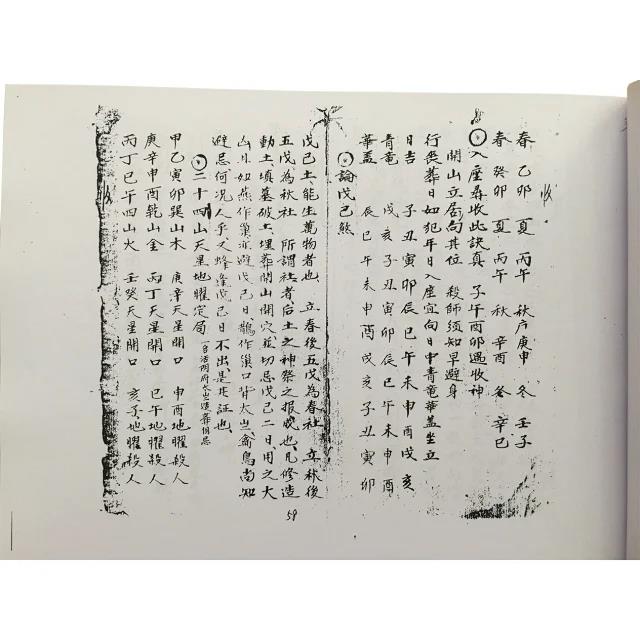 春 乙卯 夏 丙午 秋 庚申 冬 壬子
春 癸卯 夏 丙午 秋 辛酉 冬 辛巳
入座尋收此訣真 子午酉卯遇收神
開山立居局其位 殺師須知早避身
行喪葬日如犯年日入座宜向日中青竜華盖坐立
日吉 子丑寅卯辰巳午未申酉戌亥
青竜 戌亥子丑寅卯辰巳午未申酉
華盖 辰巳午未申酉戌亥子丑寅卯
論戊己煞
戊己土能生萬物者也 立春後五戊為春社 立秋後
五戊為秋社 所謂社者后土之神祭之报成也凡修造
動土填墓破土埋葬開山開穴並切忌戊己二日用之大
凶 如燕作巢亦避戊己日鵲作巢口背太岁禽鳥尚知
避忌何况人乎又蜂逢戊己日不出是其証也
二十四山天星地曜定局
甲乙寅卯巽山木 庚辛天星開口 申酉地曜殺人
庚辛申酉乾山金 丙丁天星開口 巳午地曜殺人
丙丁巳午四山火 壬癸天星開口 亥子地曜殺人
59